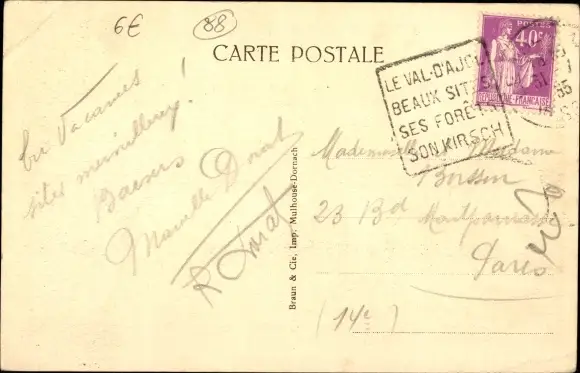 6€
88
CARTE POSTALE
LE VAL-D'AJOL
BEAUX SITES
SES FORÊTS
SON KIRSCH
40c
RÉPUBLIQUE FRANÇAISE
31
35
En Vacances
sites merveilleux!
Baisers
Marcelle Donat
R Donat
Braun & Cie, Imp. Mulhouse-Dornach
Mademoiselle Madame
23 Bd Montparnasse
Paris
(14e)